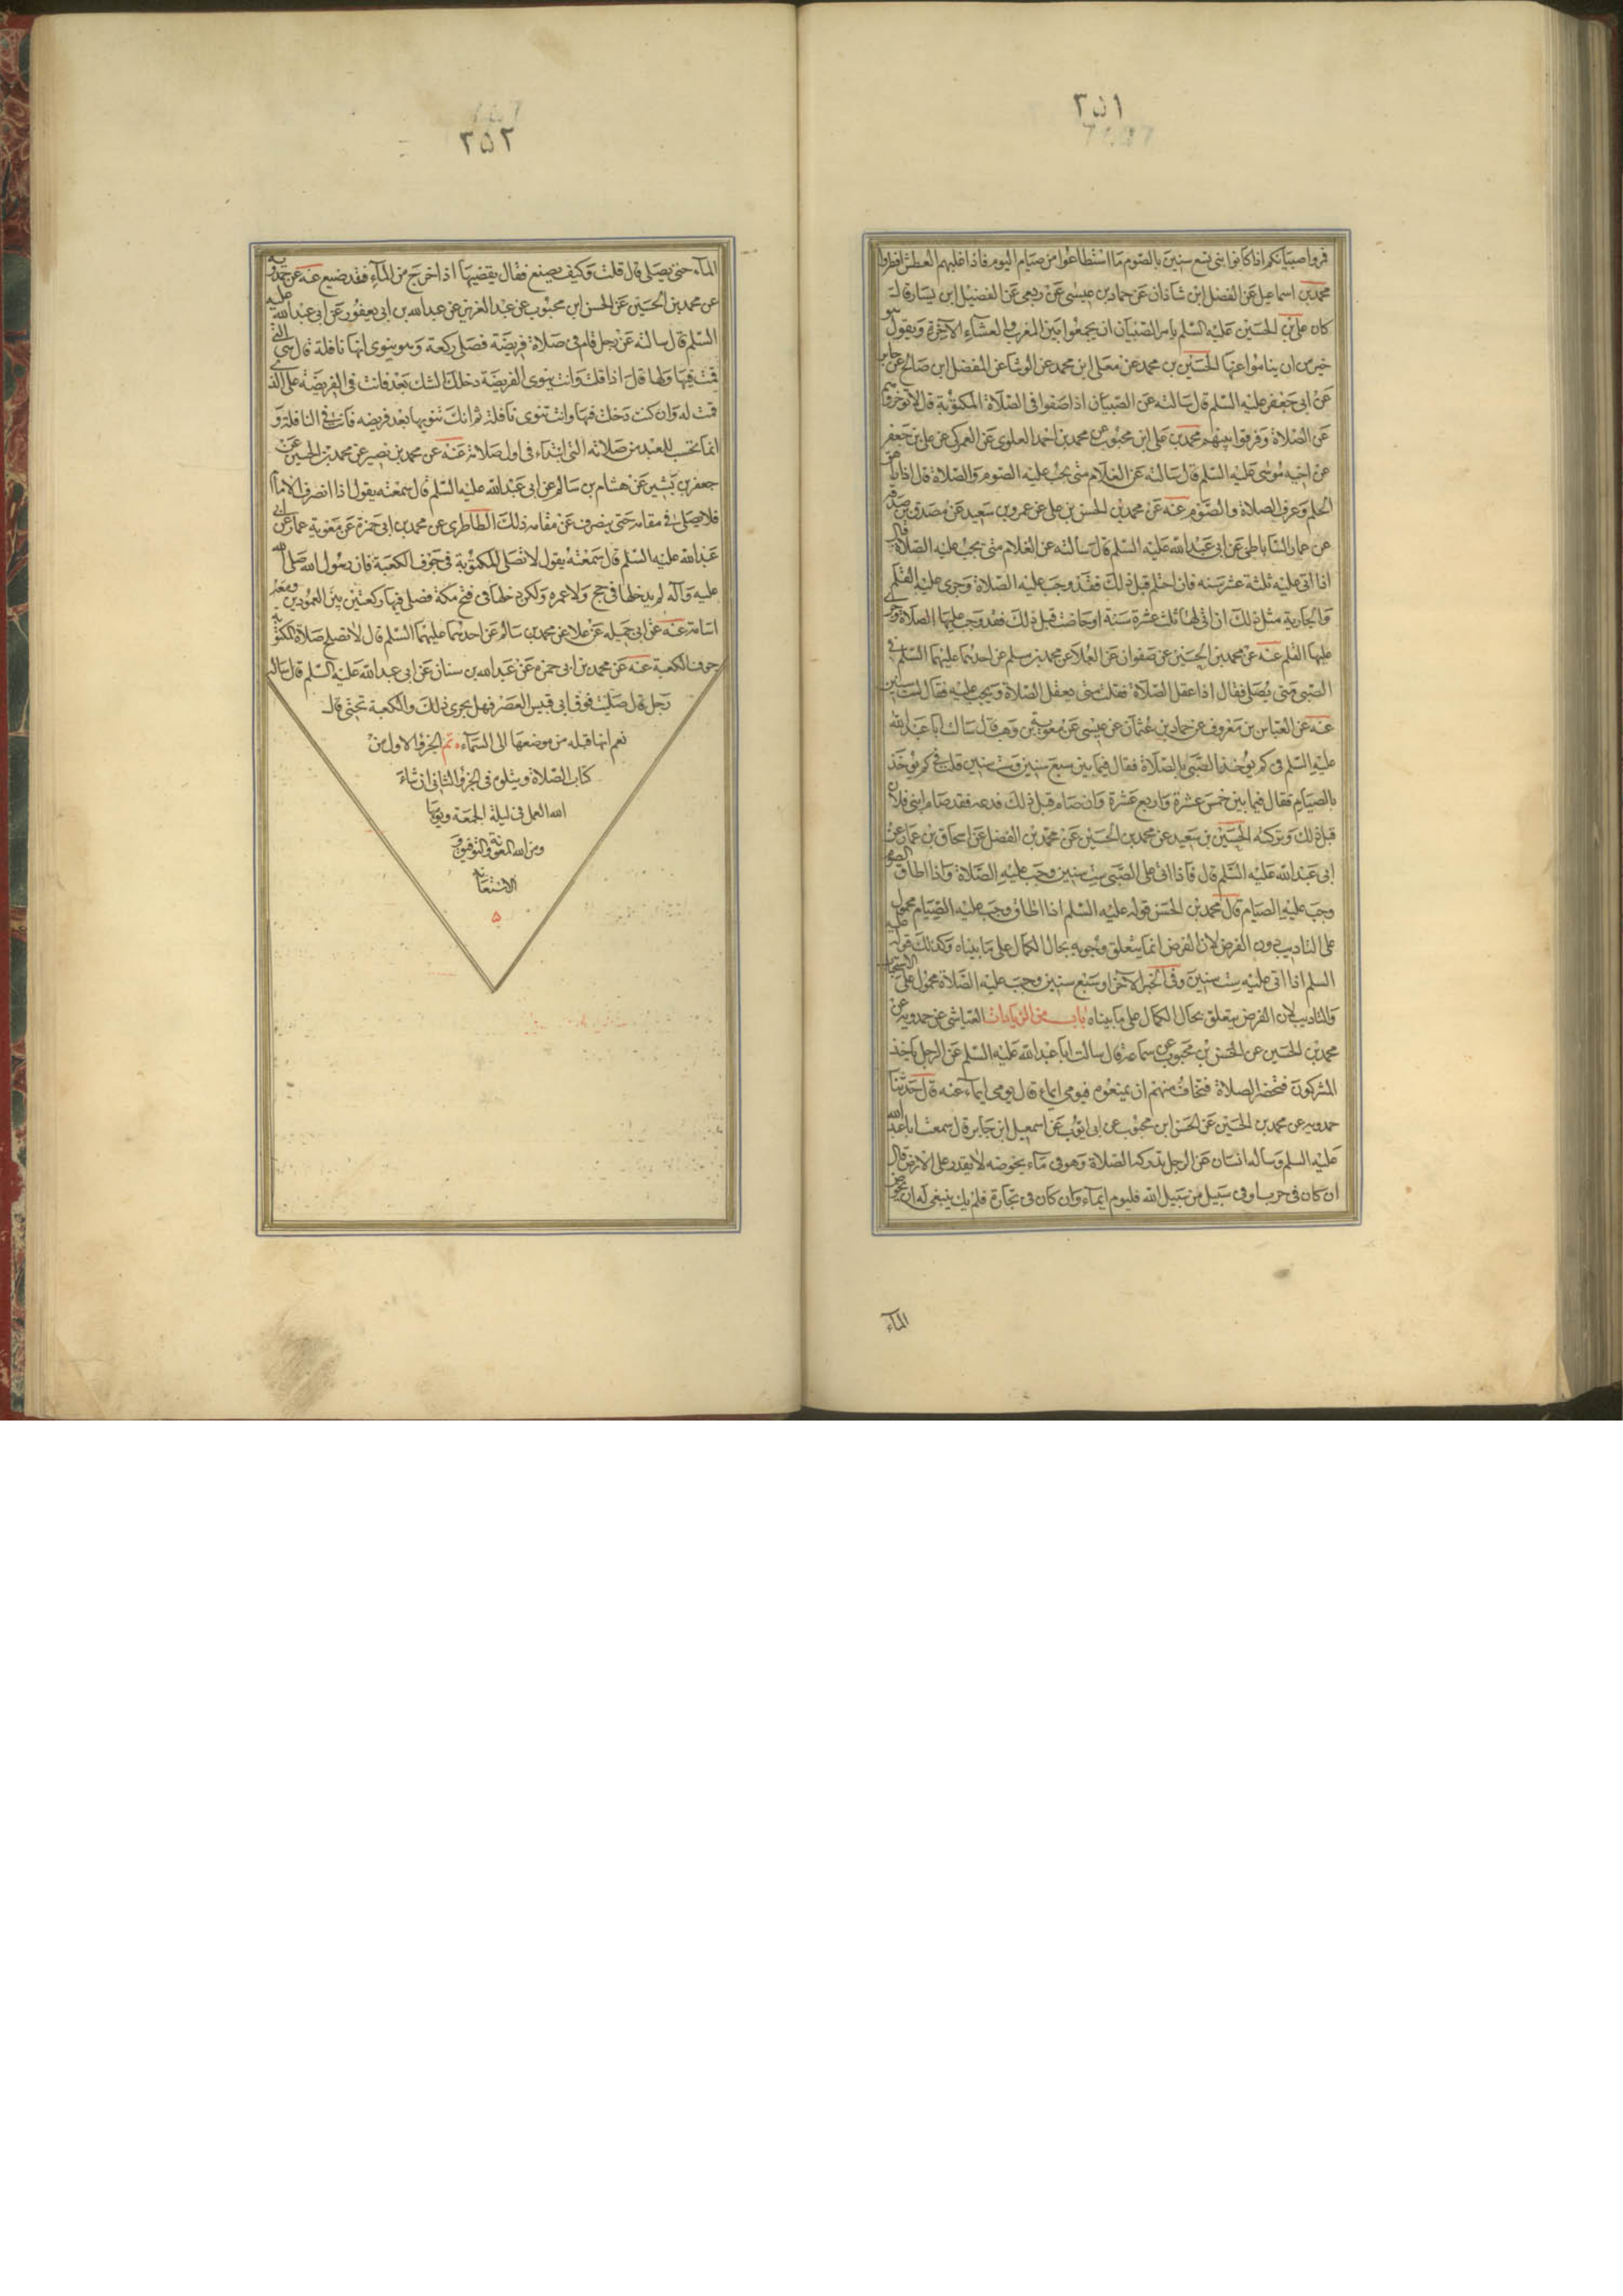 ۲۵۱
فمروا صبيانكم اذا كانوا ابنى تسع سنين بالصوم ما استطاعوا من صيام اليوم فاذا غلبهم العطش افطروا
محمد بن اسماعيل عن الفضل ابن شاذان عن حماد بن عيسى عن ربعى عن الفضيل ابن يسار قال
كان على بن الحسين عليه السلم يامر الصبيان ان يجمعوا بين المغرب والعشاء الآخرة ويقول هو
خير من ان يناموا عنها الحسين بن محمد عن معلى ابن محمد عن الوشا عن المفضل ابن صالح عن جابر
عن ابى جعفر عليه السلم قال سالته عن الصبيان اذا صفوا فى الصلاة المكتوبة قال لا تؤخروهم
عن الصلاة وفرقوا بينهم محمد بن على ابن محبوب عن محمد بن احمد العلوى عن العمركى عن على بن جعفر
عن اخيه موسى عليه السلم قال سالته عن الغلام متى يجب عليه الصوم والصلاة قال اذا راهق
الحلم وعرف الصلاة والصوم عنه عن محمد بن الحسن بن على عن عمرو بن سعيد عن مصدق بن صدقة
عن عمار الساباطى عن ابى عبد الله عليه السلم قال سالته عن الغلام متى يجب عليه الصلاة قال
اذا اتى عليه ثلثة عشر سنه فان احتلم قبل ذلك فقد وجب عليه الصلاة وجرى عليه القلم
والجارية مثل ذلك ان اتى لها ثلث عشرة سنة او حاضت قبل ذلك فقد وجب عليها الصلاة وجرى
عليها القلم عنه عن محمد بن الحسين عن صفوان عن العلا عن محمد بن مسلم عن احدهما عليهما السلم فى
الصبى متى يصلى فقال اذا عقل الصلاة فقلت متى يعقل الصلاة ويجب عليه فقال لست سنين
عنه عن العباس بن معروف عن حماد بن عثمان عن عيسى عن معوية بن وهب قال سالت ابا عبد الله
عليه السلم فى كم يؤخذ الصبى بالصلاة فقال فيما بين سبع سنين وست سنين قلت فى كم يؤخذ
بالصيام فقال فيما بين خمس عشرة واربع عشرة وان صام قبل ذلك فدعه فقد صام ابنى فلان
قبل ذلك وتركته الحسين بن سعيد عن محمد بن الحسين عن محمد بن الفضل عن اسحاق بن عمار عن
ابى عبد الله عليه السلم قال فاذا اتى على الصبى ست سنين وجب عليه الصلاة واذا اطاق الصوم
وجب عليه الصيام قال محمد بن الحسن قوله عليه السلم اذا اطاق وجب عليه الصيام محمول
على التاديب دون الفرض لان الفرض انما يتعلق وجوبه بحال الكمال على ما بيناه وكذلك قوله عليه
السلم اذا اتى عليه ست سنين وفى الخبر الآخر او سبع سنين وجب عليه الصلاة محمول على الاستحباب
والتاديب لان الفرض يتعلق بحال الكمال على ما بيناه باب من الزيادات العياشى عن حمدويه عن
محمد بن الحسين عن الحسن بن محبوب عن سماعة قال سالت ابا عبد الله عليه السلم عن الرجل ياخذه
المشركون فتحضر الصلاة فتخاف منهم ان يمنعوه فيومى ايماء قال يومى ايماء عنه قال حدثنا
حمدويه عن محمد بن الحسين عن الحسن ابن محبوب عن ابى ايوب عن اسمعيل ابن جابر قال سمعت ابا عبد الله
عليه السلم وساله انسان عن الرجل تدركه الصلاة وهو فى مآء يخوضه لا يقدر على الارض قال
ان كان فى حرب او فى سبيل من سبيل الله فليوم ايمآء وان كان فى تجارة فلم يك ينبغى له ان يخوض
المآء
۲۵۲
المآء حتى يصلى قال قلت وكيف يصنع فقال يقضيها اذا خرج من المآء فقد ضيع عنه عن حمدويه
عن محمد بن الحسين عن الحسن ابن محبوب عن عبد العزيز عن عبد الله بن ابى يعفور عن ابى عبد الله عليه
السلم قال سالته عن رجل قام فى صلاة فريضة فصلى ركعة وهو ينوى انها نافلة قال هى التى
قمت فيها ولها قال اذا قلت وانت ينوى الفريضة دخلك الشك بعد فانت فى الفريضة على الذى
قمت له وان كنت دخلت فيها وانت تنوى نافلة ثم انك تنويها بعد فريضه فانت فى النافلة و
انما تحتسب للعبد من صلاته التى ابتداء فى اول صلاته عنه عن محمد بن نصير عن محمد بن الحسين عن
جعفر بن بشير عن هشام بن سالم عن ابى عبد الله عليه السلم قال سمعته يقول اذا انصرف الامام
فلا يصلى فى مقامه حتى ينصرف عن مقامه ذلك الطاطرى عن محمد بن ابى حمزة عن معوية عمار عن ابى
عبد الله عليه السلم قال سمعته يقول لا تصلى المكتوبة فى جوف الكعبة فان رسول الله صلى الله
عليه وآله لم يدخلها فى حج ولا عمره ولكن دخلها فى فتح مكة فصلى فيها ركعتين بين العمودين ومعه
اسامة عنه عن ابى جميله عن علا عن محمد بن سالم عن احدهما عليهما السلم قال لا تصلح صلاة المكتوبة
جوف الكعبة عنه عن محمد بن ابى حمزه عن عبد الله بن سنان عن ابى عبد الله عليه السلم قال ساله
رجل قال صليت فوق ابى قبيس العصر فهل يجزى ذلك والكعبة تحتى قال
نعم انها قبله من موضعها الى السمآء تم الجزؤ الاول من
كتاب الصلاة ويتلوه فى الجزؤ الثانى ان شاء
الله العمل فى ليلة الجمعة ويومها
ومن الله المعونة والتوفيق و
الاستعانة
۵